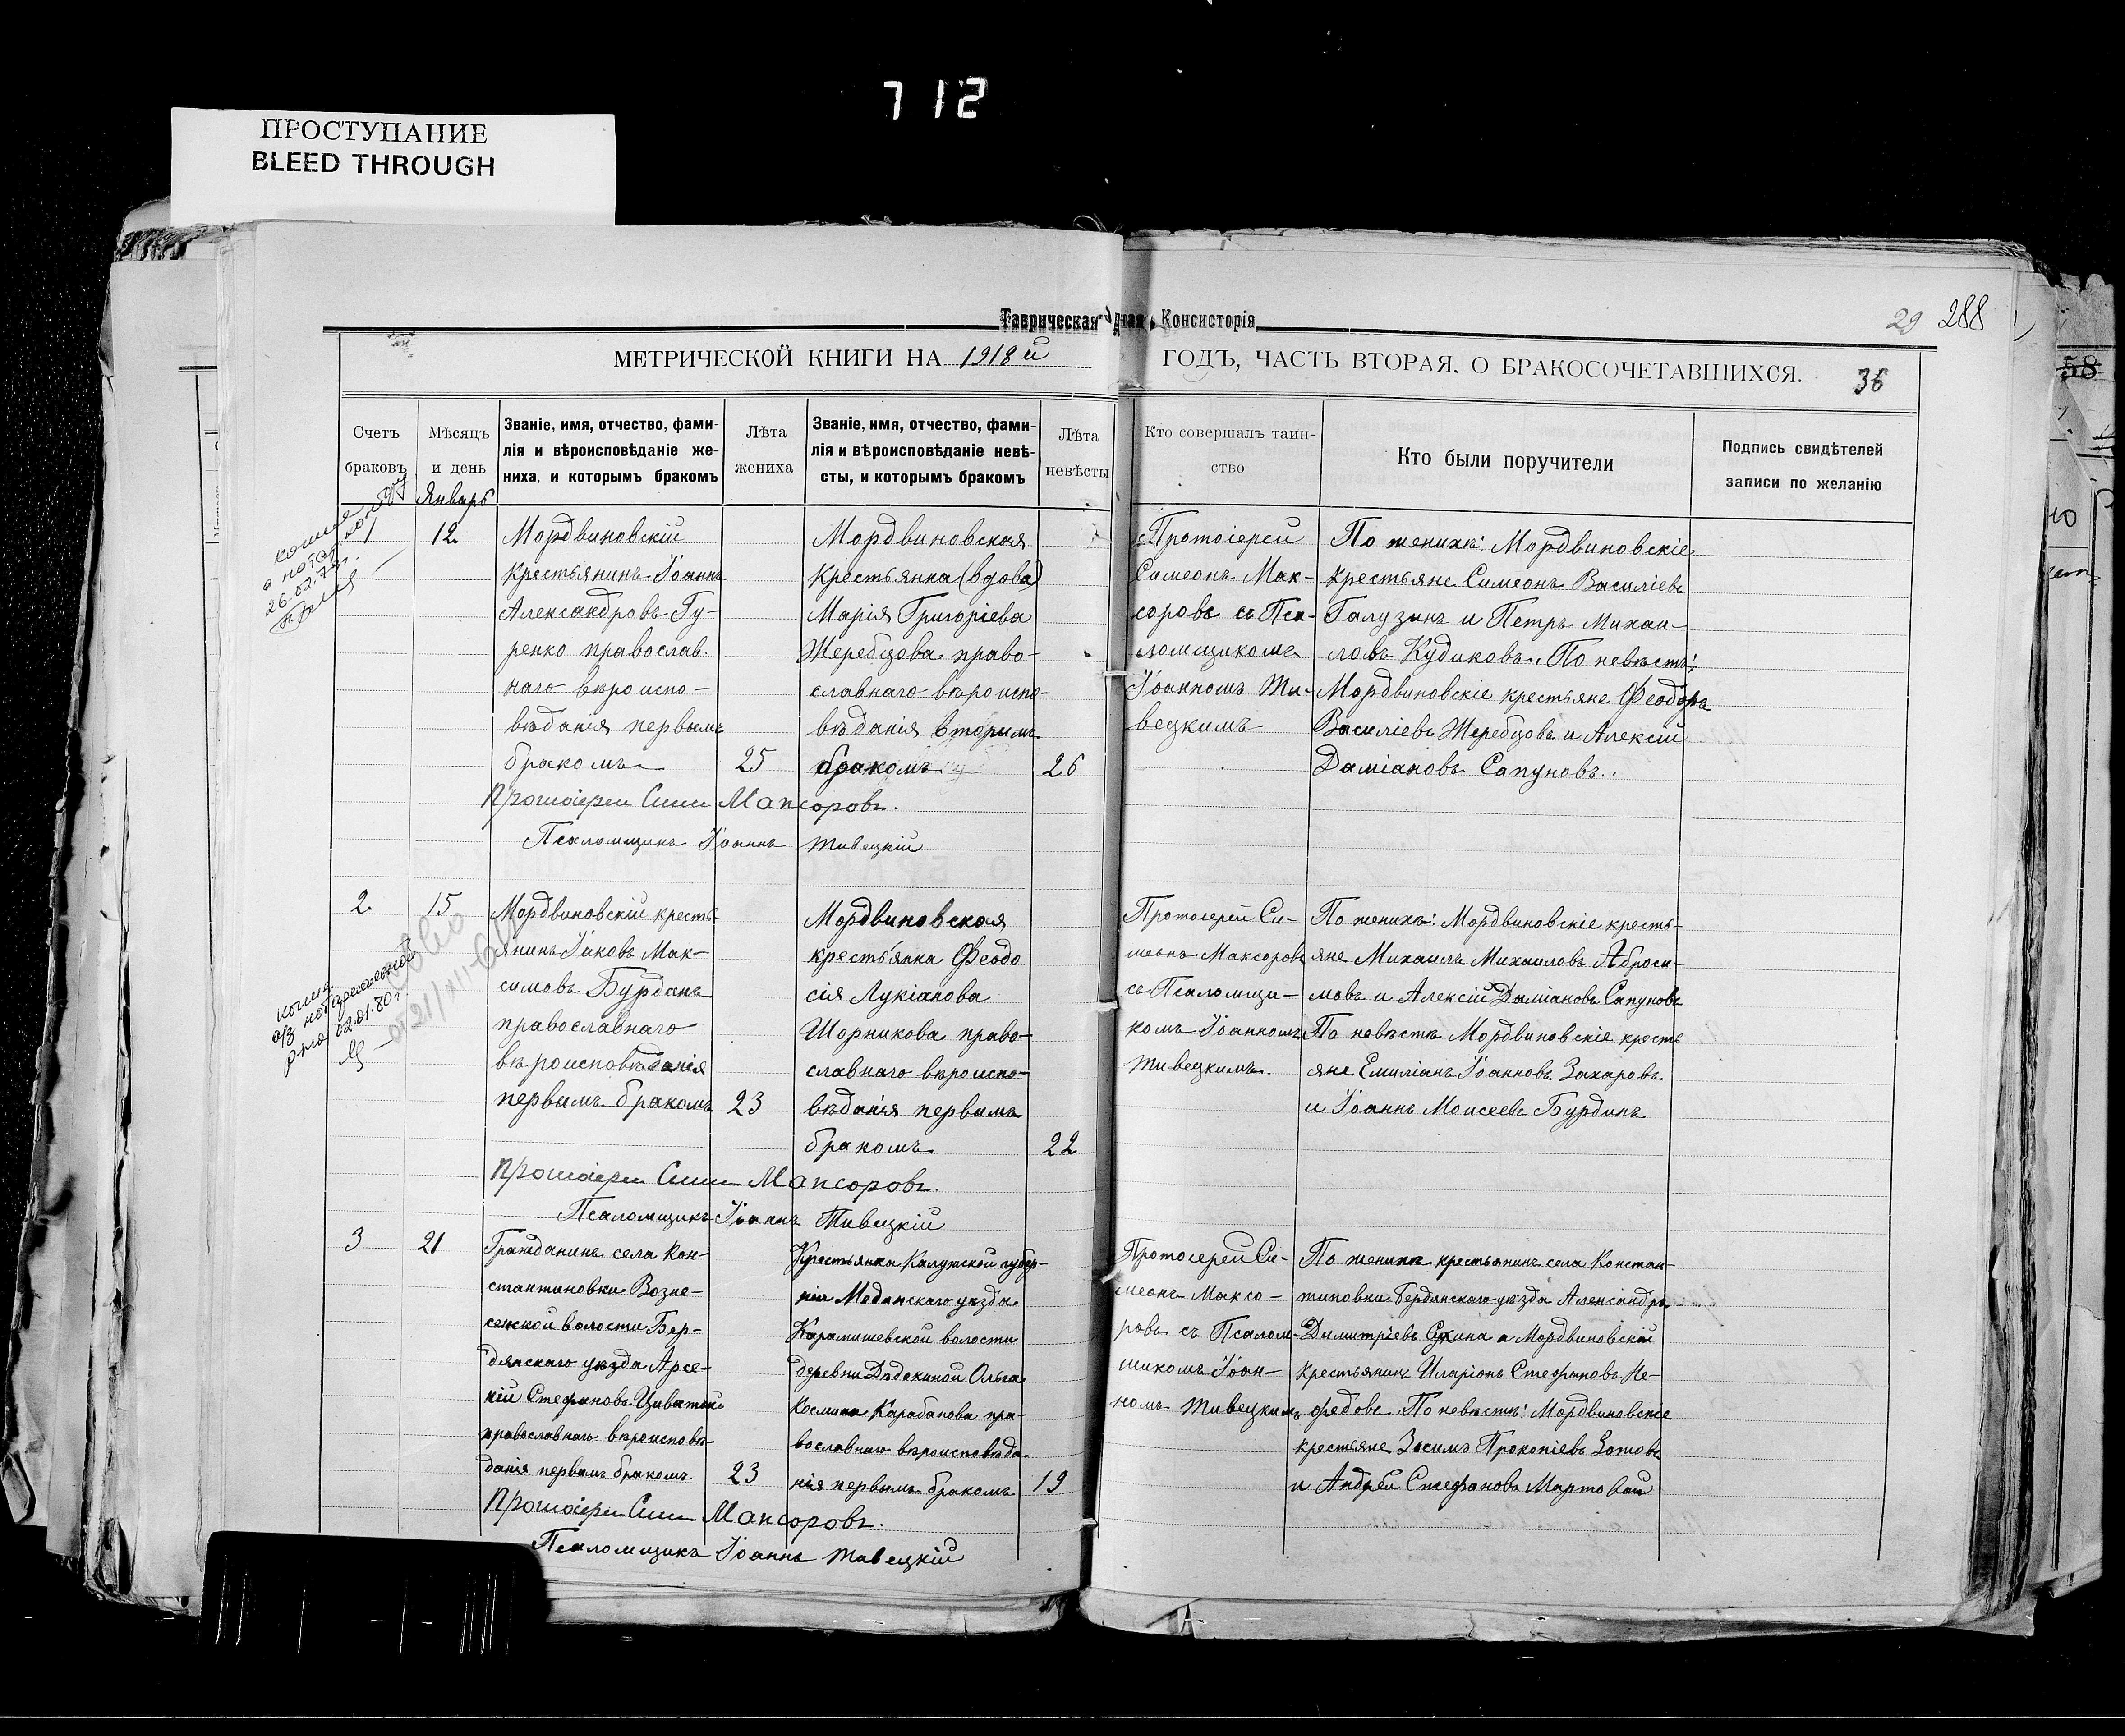 712
ПРОСТУПАНИЕ
BLEED THROUGH
Таврическая Консисторія
29 288
МЕТРИЧЕСКОЙ КНИГИ НА 1918й ГОДЪ, ЧАСТЬ ВТОРАЯ, О БРАКОСОЧЕТАВШИХСЯ. 36
58
Счетъ
браковъ
Мѣсяцъ
и день
Январь
Званіе, имя, отчество, фами-
лія и вѣроисповѣданіе же-
ниха, и которымъ бракомъ
Лѣта
жениха
Званіе, имя, отчество, фами-
лія и вѣроисповѣданіе невѣ-
сты, и которымъ бракомъ
Лѣта
невѣсты
Кто совершалъ таин-
ство
Кто были поручители
Подпись свидѣтелей
записи по желанію
копия
26.02.73г.
1
12.
Мордвиновскій
крестьянинъ Іоаннъ
Александровъ Гу-
ренко православ.
наго вѣроиспо-
вѣданія первымъ
бракомъ
25
Мордвиновская
крестьянка (вдова)
Марія Григоріева
Жеребцова право-
славнаго вѣроиспо-
вѣданія вторымъ
бракомъ
26
Протоіерей
Симеонъ Мак-
соровъ съ Пса-
ломщикомъ
Іоанномъ Ти-
вецкимъ
По женихѣ: Мордвиновскіе
крестьяне Симеонъ Василіевъ
Галузинъ и Петръ Михаи-
ловъ Кудиковъ. По невѣстѣ:
Мордвиновскіе крестьяне Феодоръ
Василіевъ Жеребцовъ и Алексій
Даміановъ Сапуновъ.
Протоіерей Сим Максоровъ.
Псаломщикъ Іоаннъ Тивецкій
копия
нотариальной
02.01.80г.
2.
15
Мордвиновскій кресть-
янинъ Іаковъ Мак-
симовъ Бурдинъ
православнаго
вѣроисповѣданія
первымъ бракомъ
23
Мордвиновская
крестьянка Феодо
сія Лукіанова
Шорникова право-
славнаго вѣроиспо-
вѣданія первымъ
бракомъ
22
Протоіерей Си-
меонъ Максоровъ
съ Псаломщи-
комъ Іоанномъ
Тивецкимъ.
По женихѣ: Мордвиновскіе кресть-
яне Михаилъ Михаиловъ Аброси-
мовъ и Алексій Даміановъ Сапуновъ
По невѣстѣ Мордвиновскіе кресть
яне Емиліанъ Іоанновъ Захаровъ
и Іоаннъ Моисеевъ Бурдинъ
Протоіерей Сим Максоровъ.
Псаломщикъ Іоаннъ Тивецкій
3
21
Гражданинъ села Кон-
стантиновки Возне-
сенской волости Бер-
дянскаго уѣзда Арсе-
ній Стефановъ
православнаго вѣроисповѣ-
данія первымъ бракомъ
23
Крестьянка Калужской губер-
ніи Медынскаго уѣзда
Карамышевской волости
деревни Ольга
Космина Карабанова пра-
вославнаго вѣроисповѣда
нія первымъ бракомъ
19
Протоіерей Си-
меонъ Максо-
ровъ съ Псалом-
щикомъ Іоан-
номъ Тивецкимъ
По женихѣ крестьянинъ села Констан-
тиновки Бердянскаго уѣзда Александръ
Димитріевъ и Мордвиновскій
крестьянинъ Иларіонъ Стефановъ Не-
федовъ По невѣстѣ: Мордвиновскіе
крестьяне Зосимъ Прокопіевъ Зотовъ
и Андрей Стефановъ Мартовой
Протоіерей Сим Максоровъ.
Псаломщикъ Іоаннъ Тивецкій